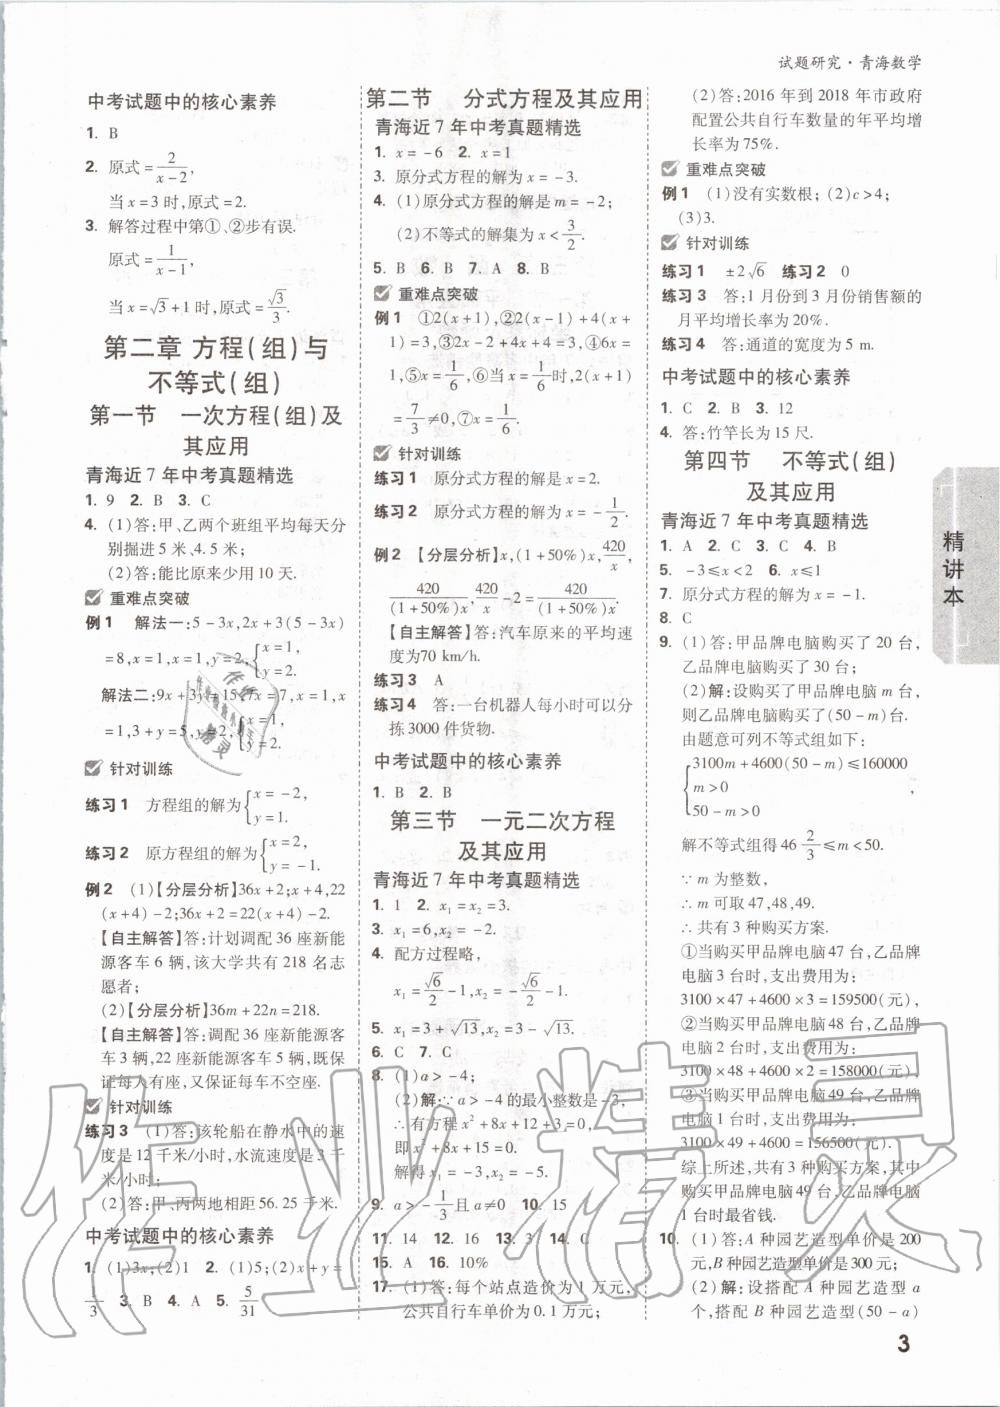 试题研究·青海数学
中考试题中的核心素养
1. B
2. 原式=2/(x-2),
当x=3时,原式=2.
3. 解答过程中第①、②步有误.
原式=1/(x-1),
当x=√3+1时,原式=√3/3.
第二章 方程(组)与
不等式(组)
第一节 一次方程(组)及
其应用
青海近7年中考真题精选
1. 9 2. B 3. C
4. (1)答:甲、乙两个班组平均每天分
别掘进5米、4.5米;
(2)答:能比原来少用10天.
重难点突破
例1 解法一:5-3x,2x+3(5-3x)
=8,x=1,x=1,y=2,{x=1, y=2.
解法二:9x+3y=15,7x=7,x=1,x
=1,3+y=5,y=2,{x=1, y=2.
针对训练
练习1 方程组的解为{x=-2, y=1.
练习2 原方程组的解为{x=1, y=-1.
例2 (1)【分层分析】36x+2;x+4,22
(x+4)-2;36x+2=22(x+4)-2.
【自主解答】答:计划调配36座新能
源客车6辆,该大学共有218名志
愿者;
(2)【分层分析】36m+22n=218.
【自主解答】答:调配36座新能源客
车3辆,22座新能源客车5辆,既保
证每人有座,又保证每车不空座.
针对训练
练习3 (1)答:该轮船在静水中的速
度是12千米/小时,水流速度是3千
米/小时;
(2)答:甲、丙两地相距56.25千米.
中考试题中的核心素养
1. (1)3x;(2)1 2. (1)5;(2)x+y=
1/3 3. B 4. A 5. 5/31
第二节 分式方程及其应用
青海近7年中考真题精选
1. x=-6 2. x=1
3. 原分式方程的解为x=-3.
4. (1)原分式方程的解是m=-2;
(2)不等式的解集为x<3/2.
5. B 6. B 7. A 8. B
重难点突破
例1 ①2(x+1),②2(x-1)+4(x+
1)=3,③2x-2+4x+4=3,④6x=
1,⑤x=1/6,⑥当x=1/6时,2(x+1)
=7/3≠0,⑦x=1/6.
针对训练
练习1 原分式方程的解是x=2.
练习2 原分式方程的解为x=-1/2.
例2 【分层分析】x,(1+50%)x,420/x,
420/((1+50%)x),420/x-2=420/((1+50%)x)
【自主解答】答:汽车原来的平均速
度为70 km/h.
练习3 A
练习4 答:一台机器人每小时可以分
拣3000件货物.
中考试题中的核心素养
1. B 2. B
第三节 一元二次方程
及其应用
青海近7年中考真题精选
1. 1 2. x₁=x₂=3.
3. x₁=6,x₂=-2.
4. 配方过程略,
x₁=√6/2-1,x₂=-√6/2-1.
5. x₁=3+√13,x₂=3-√13.
6. C 7. C
8. (1)a>-4;
(2)解:∵a>-4的最小整数是-3,
∴有方程x²+8x+12=-3,
即x²+8x+15=0,
解得x₁=-3,x₂=-5.
9. a>-1/3且a≠0 10. 15
11. 14 12. 16 13. 3 14. C
15. A 16. 10%
17. (1)答:每个站点造价为1万元,
公共自行车单价为0.1万元;
(2)答:2016年到2018年市政府
配置公共自行车数量的年平均增
长率为75%.
重难点突破
例1 (1)没有实数根;(2)c>4;
(3)3.
针对训练
练习1 ±2√6 练习2 0
练习3 答:1月份到3月份销售额的
月平均增长率为20%.
练习4 答:通道的宽度为5 m.
中考试题中的核心素养
1. C 2. B 3. 12
4. 答:竹竿长为15尺.
第四节 不等式(组)
及其应用
青海近7年中考真题精选
1. A 2. C 3. C 4. B
5. -3≤x<2 6. x≤1
7. 原分式方程的解为x=-1.
8. C
9. (1)答:甲品牌电脑购买了20台,
乙品牌电脑购买了30台;
(2)解:设购买了甲品牌电脑m台,
则乙品牌电脑购买了(50-m)台.
由题意可列不等式组如下:
{3100m+4600(50-m)≤160000
m>0
50-m>0 ,
解不等式组得46 2/3≤m<50.
∵m为整数,
∴m可取47,48,49.
∴共有3种购买方案.
①当购买甲品牌电脑47台,乙品牌
电脑3台时,支出费用为:
3100×47+4600×3=159500(元),
②当购买甲品牌电脑48台,乙品牌
电脑2台时,支出费用为:
3100×48+4600×2=158000(元),
③当购买甲品牌电脑49台,乙品牌
电脑1台时,支出费用为:
3100×49+4600=156500(元).
综上所述,共有3种购买方案,其中
购买甲品牌电脑49台,乙品牌电脑
1台时最省钱.
10. (1)答:A种园艺造型单价是200
元,B种园艺造型单价是300元;
(2)解:设搭配A种园艺造型a
个,搭配B种园艺造型(50-a)
精讲本
3
作业精灵